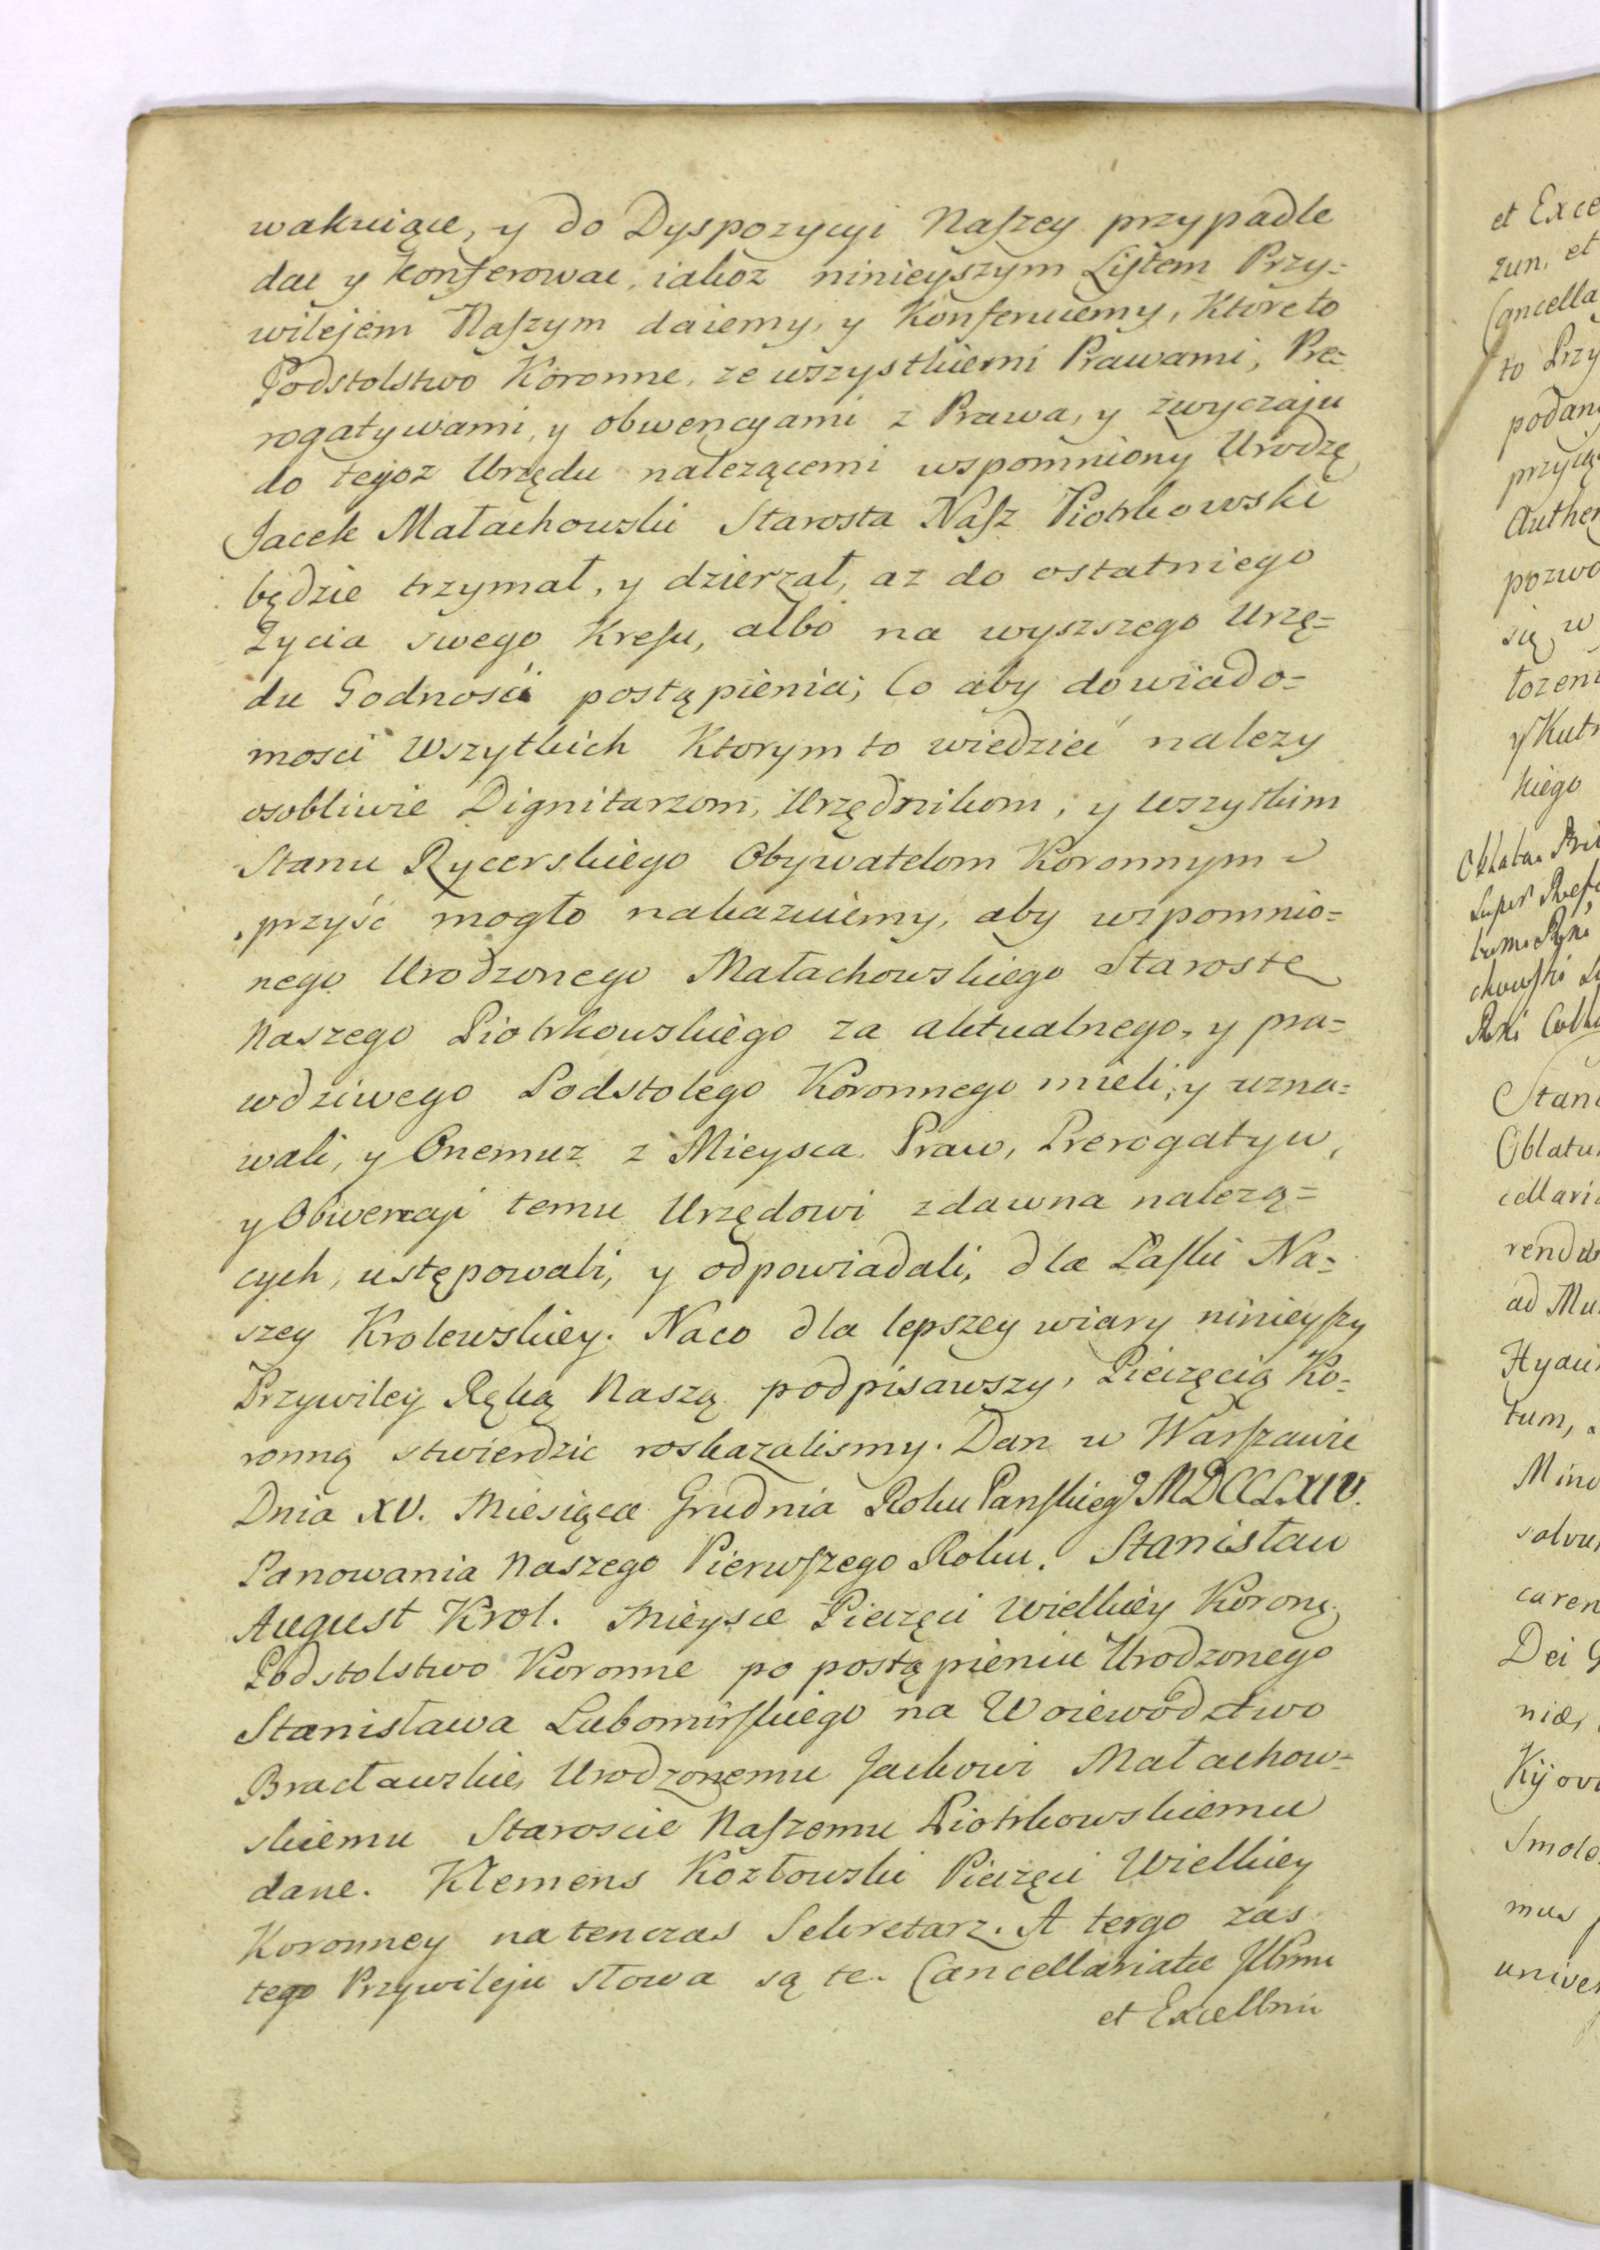 wakuiące, y do Dyspozycyi Naszey przypadłe
dac y konferowac, iakoż ninieyszym Listem Przy=
wilejem Naszym daiemy, y Konferuiemy, Ktoreto
Podstolstwo Koronne, ze wszystkiemi Prawami, Pre=
rogatywami, y obwencyami z Prawa, y zwyczaju
do tegoz Urzędu nalezącemi wspomniony Urodzę
Jacek Małachowski Starosta Nasz Piotrkowski
będzie trzymał, y dzierzał, az do ostatniego
Zycia swego Kresu, albo na wyszszego Urzę=
du Godności postąpienia; Co aby dowiado=
mosci Wszytkich Ktorym to wiedzieć nalezy
osobliwie Dignitarzom, Urzędnikom, y wszytkim
Stanu Rycerskiego Obywatelom Koronnym
przyść mogło nakazuiemy, aby wspomnio=
nego Urodzonego Małachowskiego Starostę
Naszego Piotrkowskiego za aktualnego, y pra=
wdziwego Podstolego Koronnego mieli, y uzna=
wali, y Onemuz z Mieysca Praw, Prerogatyw,
y Obwencyi temu Urzędowi zdawna nalezą=
cych, ustępowali, y odpowiadali, dla Łaski Na=
szey Krolewskiey. Naco dla lepszey wiary ninieyszy
Przywiley Ręką Naszą podpisawszy, Pieczęcią Ko=
ronną stwierdzic roskazalismy. Dan w Warszawie
Dnia XV. Miesiąca Grudnia Roku Panskieg° MDCCLXIV.
Panowania Naszego Pierwszego Roku. Stanisław
August Krol. Mieysce Pieczęci Wielkiey Koronę.
Podstolstwo Koronne po postąpieniu Urodzonego
Stanisława Lubomirskiego na Woiewodztwo
Bracławskie, Urodzonemu Jackowi Małachow=
skiemu Staroscie Naszemu Piotrkowskiemu
dane. Klemens Kozłowski Pieczęci Wielkiey
Koronney natenczas Sekretarz. A tergo zas
tego Przywileju słowa są te. Cancellariatu Illrmi
et Excellmi
et Exce
zun, et
Cancella
to Przy
podan
przyię
Authen
pozwo
się w
łozeni
y Kutn
kiego
Stani
Oblatu
cellaria
rendu
ad Mu
Hyaui
tum,
Mino
solvu
caren
Dei G
niæ,
Kijovi
Smole
mus
univer